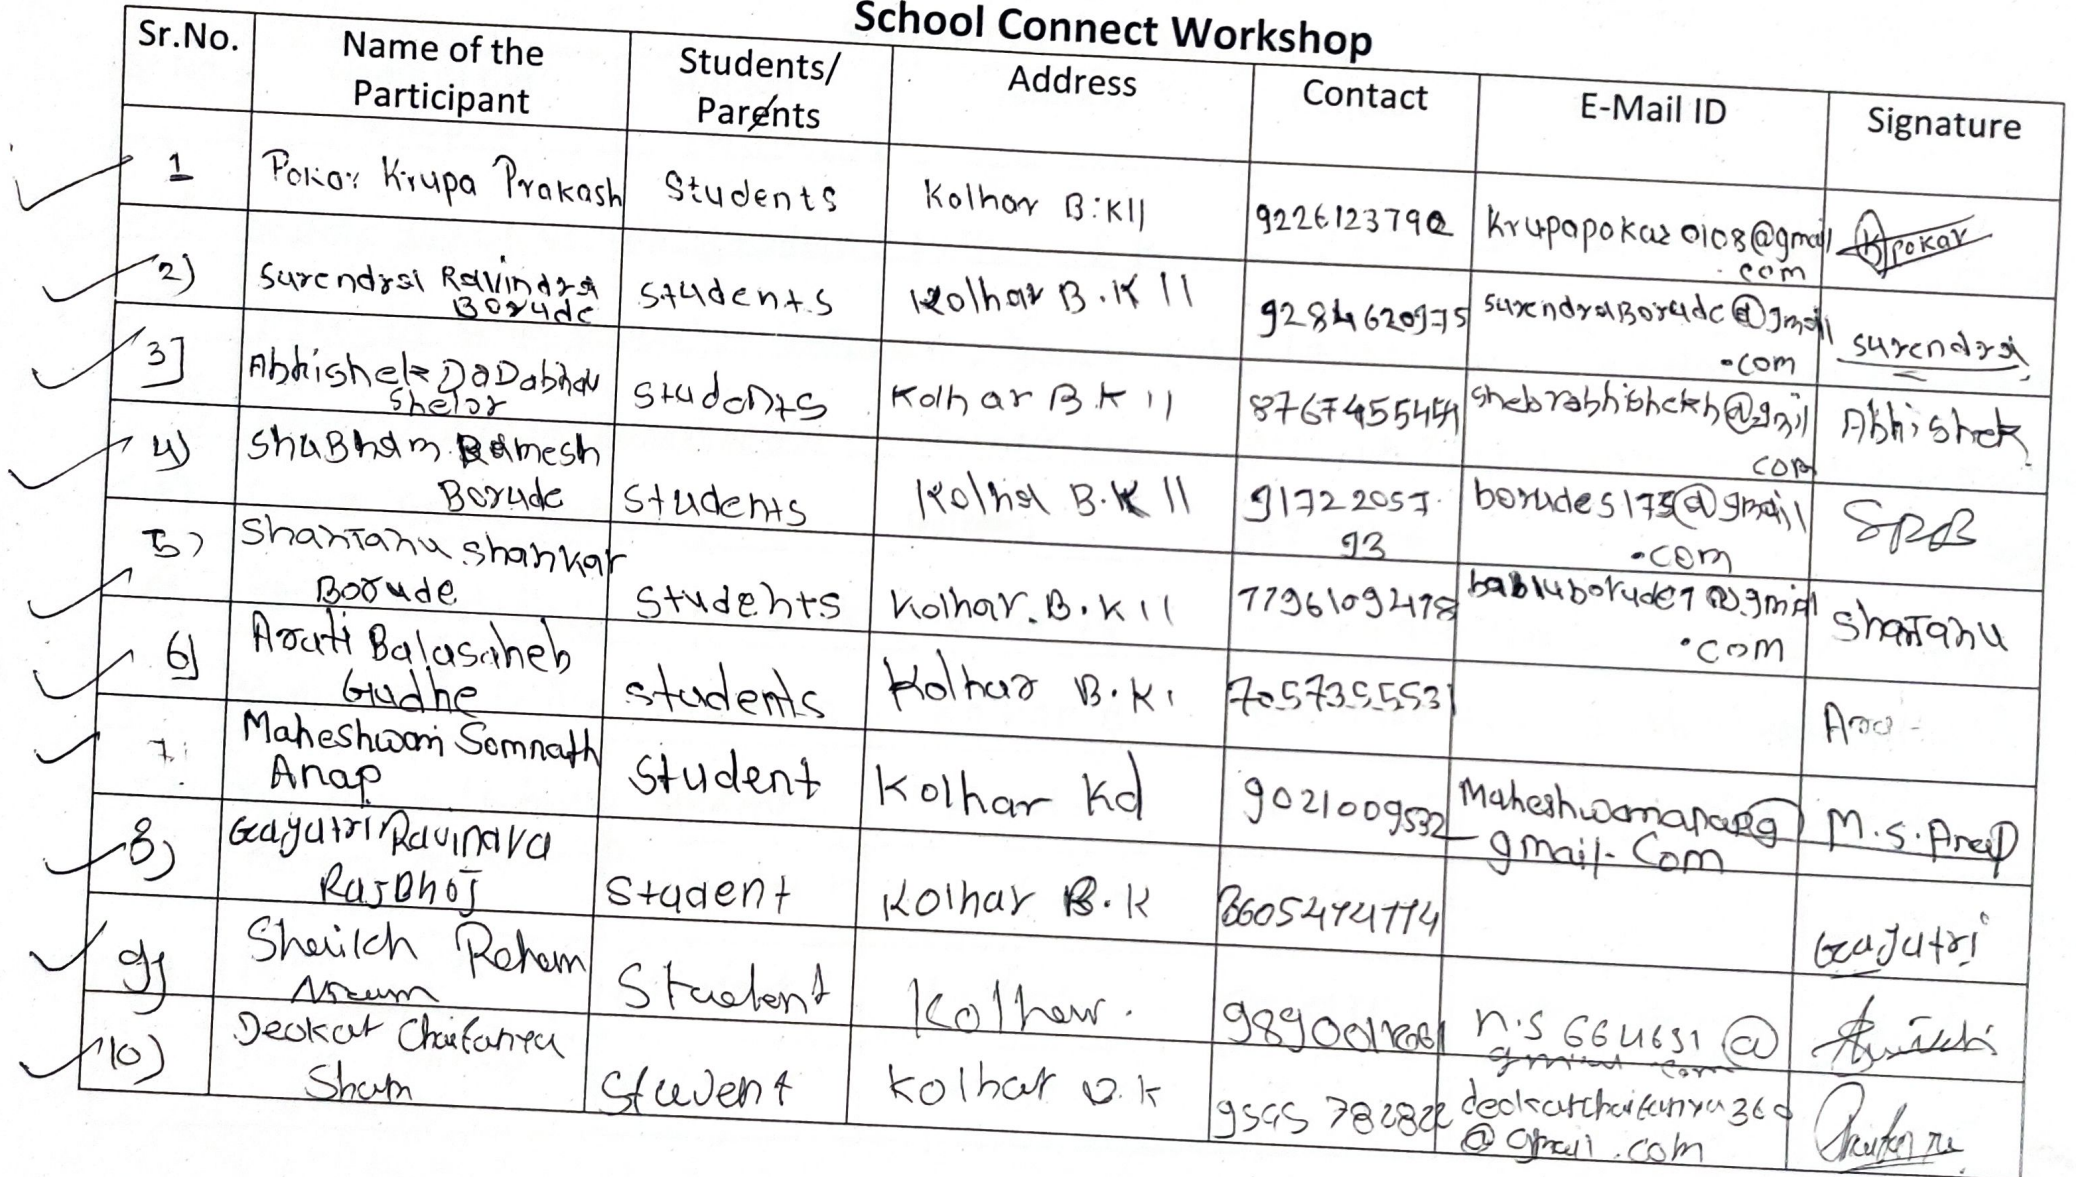 School Connect Workshop
Sr.No. Name of the Participant Students/ Parents Address Contact E-Mail ID Signature
1 Pokar Krupa Prakash Students Kolhar B.K || 9226123792 Krupapokar0108@gmail.com Kpokar
2) Surendra Ravindra Borude Students Kolhar B.K || 9284620975 surendraBorude@gmail.com surendra
3] Abhishek DaDabhau Shelar Students Kolhar B.K || 8767455454 Abhishek
4) ShuBham Ramesh Borude Students Kolha B.K || 9172205793 borude5175@gmail.com SRB
5) Shantanu Shankar Borude Students Kolhar.B.K || 7796109478 babluborude7@gmail.com Shantanu
6) Arati Balasaheb Gudhe Students Kolhar B.K. 7057355531
7. Maheshwari Somnath Anap Student Kolhar Kd 9021009532 gmail.Com M.S.Anap
8) Gayatri Ravindra RajBhoj Student Kolhar B.K 8605474774 Gayatri
9) Shaikh Reham Student Kolhar.
n.s 664631@gmail.com
10) Deokar Chaitanya Sham Student Kolhar B.K deokarchaitanya360@gmail.com